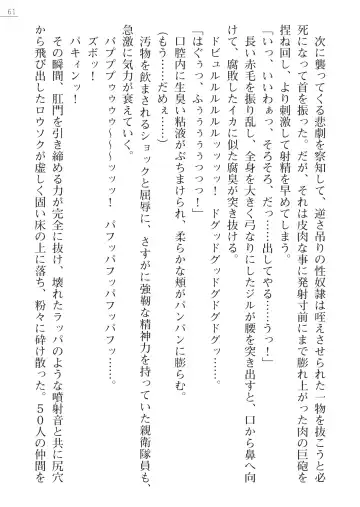 次に襲ってくる悲劇を察知して、逆さ吊りの性奴隷は咥えさせられた一物を抜こうと必
死になって首を振った。だが、それは皮肉な事に発射寸前にまで膨れ上がった肉の巨砲を
捏ね回し、より刺激して射精を早めてしまう。
「いっ、いいわぁっ、そろそろ、だ……出してやる……うっ！」
長い赤毛を振り乱し、全身を大きく弓なりにしたジルが腰を突き出すと、口から鼻へ向
けて、腐敗したイカに似た腐臭が突き抜ける。
ドビュルルルルルルッッッッ！　ドグッドグッドグドグッ……。
「はぐぅっ、ふぅぅぅぅぅっつっ！」
口腔内に生臭い粘液がぶちまけられ、柔らかな頬がパンパンに膨らむ。
(もう……だめぇ……)
汚物を飲まされるショックと屈辱に、さすがに強靱な精神力を持っていた親衛隊員も、
急激に気力が衰えていく。
パプププゥゥゥゥ～～～～ッッッ！　パフッパフッパフッパフッ……。
ズボッ！
パキィンッ！
その瞬間、肛門を引き締める力が完全に抜け、壊れたラッパの噴射音と共に尻穴
から飛び出したロウソクが虚しく固い床の上に落ち、粉々に砕け散った。５０人の仲間を
61